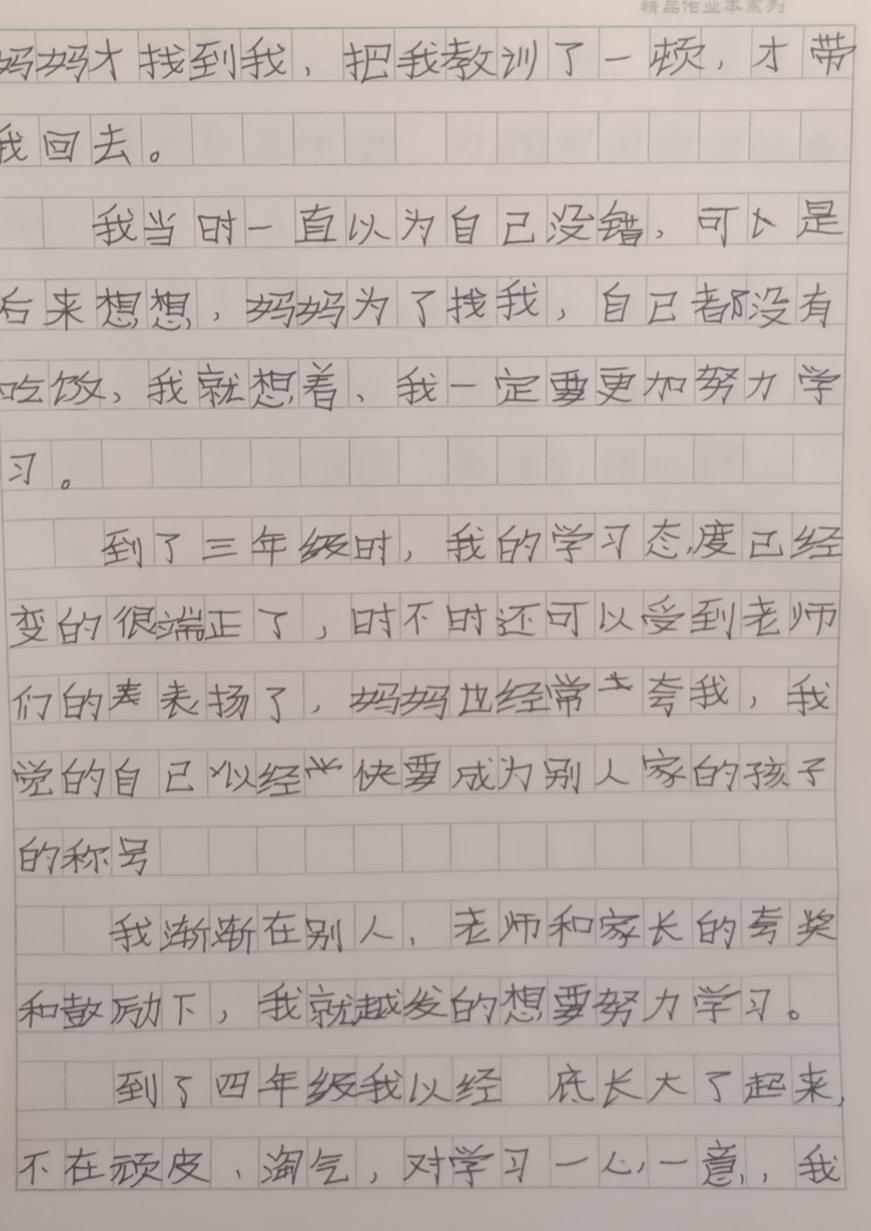 精品作业本系列
妈妈才找到我，把我教训了一顿，才带
我回去。
我当时一直以为自己没错，可卜是
后来想想，妈妈为了找我，自己都没有
吃饭，我就想着、我一定要更加努力学
习。
到了三年级时，我的学习态度已经
变的很端正了，时不时还可以受到老师
们的表扬了，妈妈也经常夸我，我
觉的自己以经快要成为别人家的孩子
的称号
我渐渐在别人、老师和家长的夸奖
和鼓励下，我就越发的想要努力学习。
到了四年级我以经 底长大了起来，
不在顽皮、淘气，对学习一心一意，，我